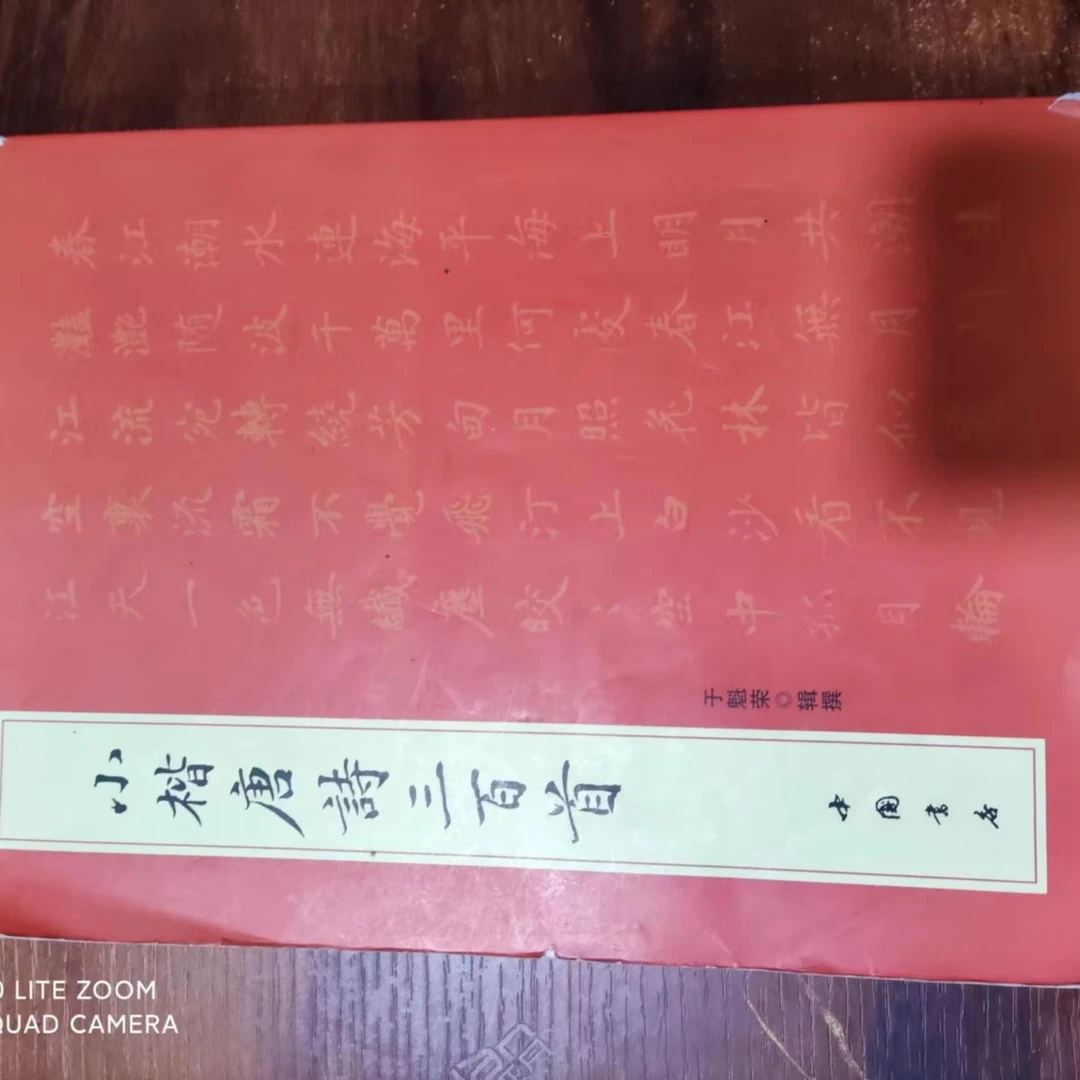 春江潮水連海平海上明月共潮生
灩灩随波千萬里何處春江無月
江流宛轉繞芳甸月照花林皆似
空裏流霜不覺飛汀上白沙看不見
江天一色無纖塵皎〻空中孤月輪
于魁荣◎辑撰
小楷唐詩三百首
中國書店
LITE ZOOM
QUAD CAMERA